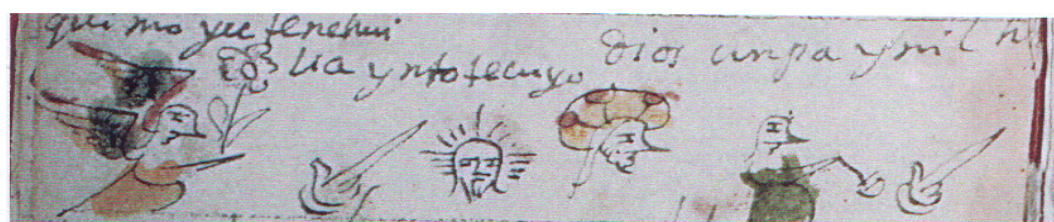 qui mo yec tenehui
lia yntotecuyo dios unpa ynil